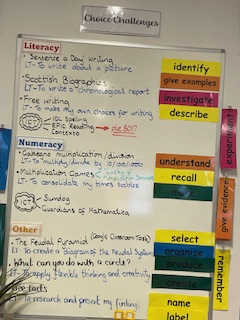 Choice Challenges
Literacy
Sentence a Day writing
LT- To write about a picture
Scottish Biographies
LT- To write a chronological report
Free writing
LT- To make my own choices for writing
ICT
IDL Spelling
EPIC Reading
Numeracy
multiplication/division
LT- To multiply/divide by 10/100/1000
Multiplication Games
LT- To consolidate my times tables
ICT
Sumdog
Guardians of Mathematica
Other
The Feudal Pyramid (Google Classroom Task)
LT- To create a diagram of the Feudal System
What can you do with a circle?
LT- To apply flexible thinking and creativity
facts
LT- To research and present my findings
identify
give examples
investigate
describe
understand
recall
select
organise
produce
create
name
label
experiment
give evidence
remember